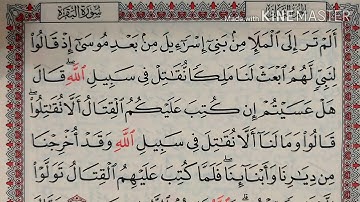 سورة البقرة
MADE WITH KINEMASTER
أَلَمْ تَرَ إِلَى الْمَلَإِ مِنْ بَنِي إِسْرَاءِيلَ مِنْ بَعْدِ مُوسَى إِذْ قَالُوا
لِنَبِيٍّ لَهُمُ ابْعَثْ لَنَا مَلِكًا نُقَاتِلْ فِي سَبِيلِ اللَّهِ قَالَ
هَلْ عَسَيْتُمْ إِنْ كُتِبَ عَلَيْكُمُ الْقِتَالُ أَلَّا تُقَاتِلُوا
قَالُوا وَمَا لَنَا أَلَّا نُقَاتِلَ فِي سَبِيلِ اللَّهِ وَقَدْ أُخْرِجْنَا
مِنْ دِيَارِنَا وَأَبْنَائِنَا فَلَمَّا كُتِبَ عَلَيْهِمُ الْقِتَالُ تَوَلَّوْا